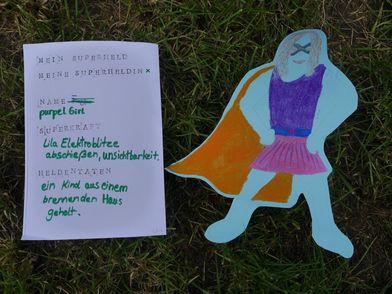 MEIN SUPERHELD
MEINE SUPERHELDIN x
NAME
purpel Girl
SUPERKRAFT
Lila Elektroblitze
abschießen, unsichtbarkeit.
HELDENTATEN
ein Kind aus einem
brennenden Haus
geholt.